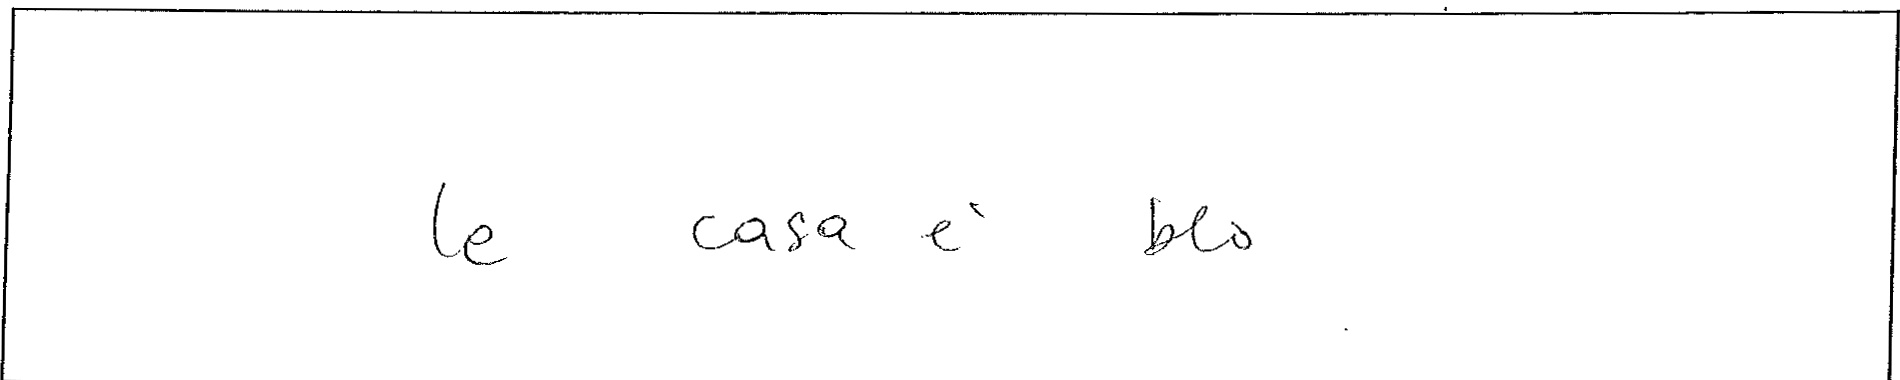 le casa è blo